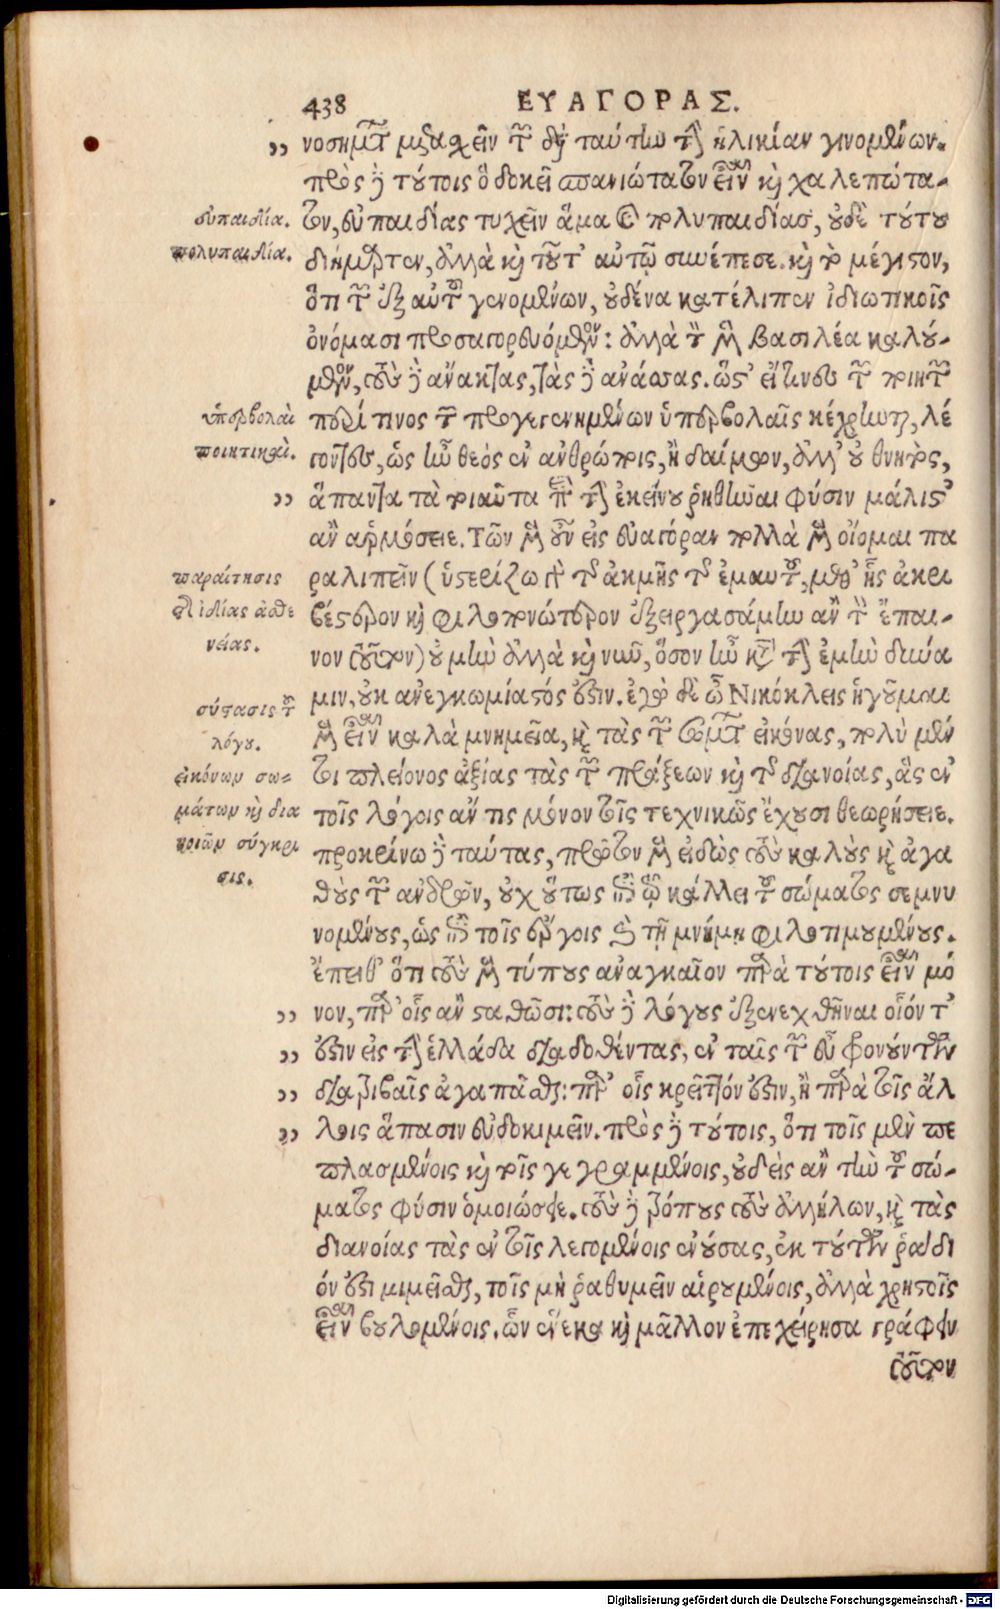 438 ΕΥΑΓΟΡΑΣ.
,, νοσημάτων μετασχεῖν τῶν διὰ ταύτην τὴν ἡλικίαν γινομένων.
πρὸς δὲ τούτοις ὃ δοκεῖ σπανιώτατον εἶναι καὶ χαλεπώτα-
τον, εὐπαιδίας τυχεῖν ἅμα καὶ πολυπαιδίας, οὐδὲ τούτου
διήμαρτεν, ἀλλὰ καὶ τοῦτ' αὐτῷ συνέπεσε. καὶ τὸ μέγιστον,
ὅτι τῶν ἐξ αὐτοῦ γενομένων, οὐδένα κατέλιπεν ἰδιωτικοῖς
ὀνόμασι προσαγορευόμενον: ἀλλὰ τὸν μὲν βασιλέα καλού-
μενον, τοὺς δὲ ἄνακτας, τὰς δὲ ἀνάσσας. ὥστ' εἴ τινες τῶν ποιητῶν
περί τινος τῶν προγεγενημένων ὑπερβολαῖς κέχρηνται, λέ
γοντες, ὡς ἦν θεὸς ἐν ἀνθρώποις, ἢ δαίμων, ἀλλ' οὐ θνητὸς,
,, ἅπαντα τὰ τοιαῦτα περὶ τὴν ἐκείνου ῥηθῆναι φύσιν μάλιστ'
ἂν ἁρμόσειε. Τῶν μὲν οὖν εἰς Εὐαγόραν πολλὰ μὲν οἴομαι πα
ραλιπεῖν (ὑστερίζω γὰρ τῆς ἀκμῆς τῆς ἐμαυτοῦ, μεθ' ἧς ἀκρι
βέστερον καὶ φιλοπονώτερον ἐξειργασάμην ἂν τὸν ἔπαι-
νον τοῦτον) οὐ μὴν ἀλλὰ καὶ νῦν, ὅσον ἦν κατὰ τὴν ἐμὴν δύνα
μιν, οὐκ ἀνεγκωμίαστός ἐστιν. ἐγὼ δὲ ὦ Νικόκλεις ἡγοῦμαι
μὲν εἶναι καλὰ μνημεῖα, καὶ τὰς τῶν σωμάτων εἰκόνας, πολὺ μέν
τοι πλείονος ἀξίας τὰς τῶν πράξεων καὶ τῆς διανοίας, ἃς ἐν
τοῖς λόγοις ἄν τις μόνον τοῖς τεχνικῶς ἔχουσι θεωρήσειε.
προκρίνω δὲ ταύτας, πρῶτον μὲν εἰδὼς τοὺς καλοὺς κἀγα
θοὺς τῶν ἀνδρῶν, οὐχ οὕτως ἐπὶ τῷ κάλλει τοῦ σώματος σεμνυ
νομένους, ὡς ἐπὶ τοῖς ἔργοις καὶ τῇ μνήμῃ φιλοτιμουμένους.
ἔπειθ' ὅτι τοὺς μὲν τύπους ἀναγκαῖον παρὰ τούτοις εἶναι μό
,, νον, παρ' οἷς ἂν σταθῶσι: τοὺς δὲ λόγους ἐξενεχθῆναι οἷόν τ'
,, ἐστιν εἰς τὴν ἑλλάδα διαδοθέντας, ἐν ταῖς τῶν εὖ φρονούντων
,, διατριβαῖς ἀγαπᾶσθαι: παρ' οἷς κρεῖττόν ἐστιν, ἢ παρὰ τοῖς ἄλ
,, λοις ἅπασιν εὐδοκιμεῖν. πρὸς δὲ τούτοις, ὅτι τοῖς μὲν πε
πλασμένοις καὶ τοῖς γεγραμμένοις, οὐδεὶς ἂν τὴν τοῦ σώ-
ματος φύσιν ὁμοιώσειε. τοὺς δὲ τρόπους τοὺς ἀλλήλων, καὶ τὰς
διανοίας τὰς ἐν τοῖς λεγομένοις ἐνούσας, ἐκ τούτων ῥᾴδι
όν ἐστι μιμεῖσθαι, τοῖς μὴ ῥαθυμεῖν αἱρουμένοις, ἀλλὰ χρηστοῖς
εἶναι βουλομένοις. ὧν ἕνεκα καὶ μᾶλλον ἐπεχείρησα γράφειν
τοῦτον
εὐπαιδία.
πολυπαιδία.
ὑπερβολαὶ
ποιητικαί.
παραίτησις
τῆς ἰδίας ἀσθε
νείας.
σύστασις τοῦ
λόγου.
εἰκόνων σω-
μάτων καὶ δια
νοιῶν σύγκρι
σις.
Digitalisierung gefördert durch die Deutsche Forschungsgemeinschaft - DFG